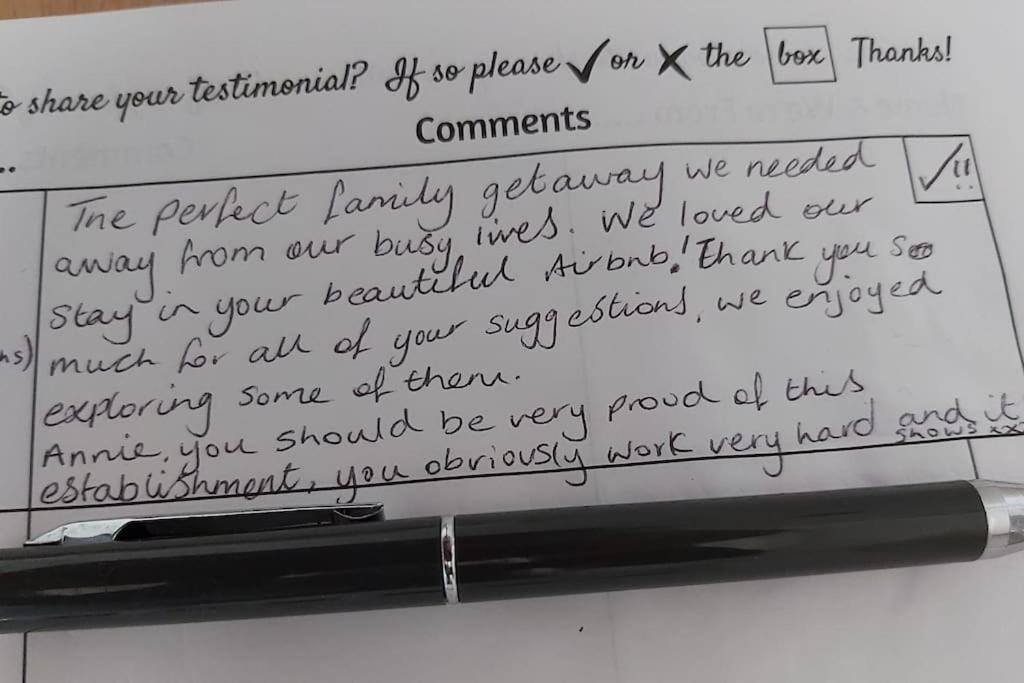 to share your testimonial? If so please ✓ or ✗ the box Thanks!
Comments
..
The perfect family getaway we needed ✓!!
away from our busy lives. We loved our
stay in your beautiful Airbnb! Thank you soo
ns) much for all of your suggestions, we enjoyed
exploring some of them.
Annie, you should be very proud of this
establishment, you obviously work very hard and it
shows xxx